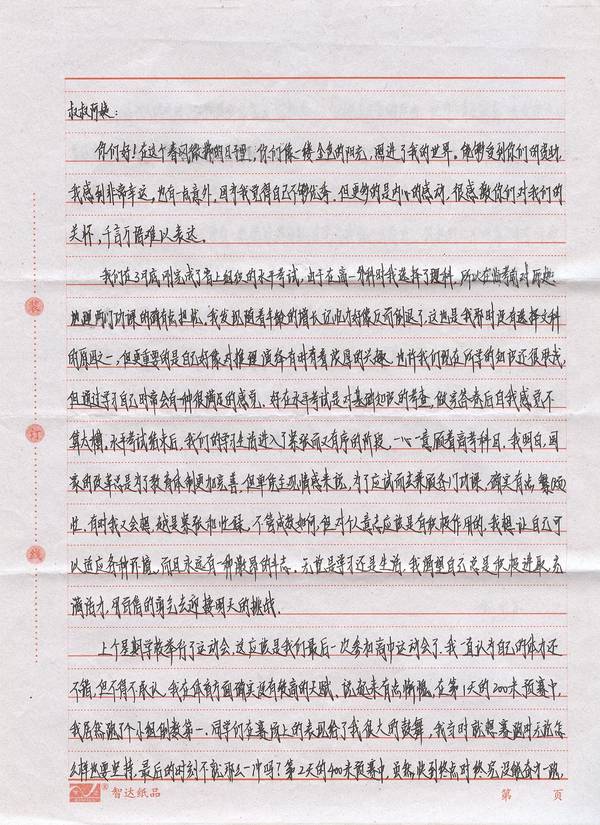 叔叔阿姨：
你们好！在这个春风徐徐的日子里，你们像一缕金色的阳光，照进了我的世界。能够受到你们的资助，
我感到非常幸运，也有一点意外，因为我觉得自己不够优秀。但更多的是内心的感动。很感激你们对我们的
关怀，千言万语难以表达。
我们在3月底刚完成了省上组织的水平考试，由于在高一分科时我选择了理科，所以在临考前对历史
地理两门功课的确有点担忧。我发现随着年龄的增长记忆力好像反而倒退了，这也是我那时没有选择文科
的原因之一，但更重要的是自己好像对推理演绎有着浓厚的兴趣。也许我们现在所学的知识还很浅，
但通过学习自己时常会有一种很满足的感觉。好在水平考试是对基础知识的考查，做完答卷后自我感觉不
算太糟。水平考试结束后，我们的学习生活进入了紧张而又有序的阶段，一心一意应着高考科目。我明白，国
家的改革总是为了教育体制更加完善，但单凭主观情感来说，为了应试而去兼顾各门功课，确实有点
性。有时我又会想，越是紧张和忙碌，不管成效如何，但对个人意志应该是有积极作用的。我想让自己可
以适应各种环境，而且永远有一种激昂的斗志。无论是学习还是生活，我渴望自己总是积极进取，充
满活力，用百倍的勇气去迎接明天的挑战。
上个星期学校举行了运动会，这应该是我们最后一次参加高中运动会了。我一直认为自己的体力还
不错，但不得不承认，我在体育方面确实没有较高的天赋。说起来有点惭愧，在第1天的200米预赛中，
我居然跑了个小组倒数第一。同学们在赛场上的表现给了我很大的鼓舞，我当时就想赛跑时无论怎
么样也要坚持，最后的时刻不就那么一冲吗？第2天的400米预赛中，虽然快到终点时
装
订
线
智达纸品
第 页